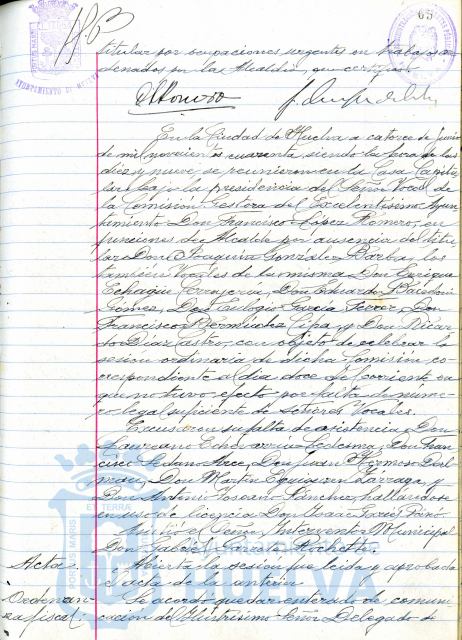 63
65
titular por ocupaciones urgentes en trabajos or-
denados por la Alcaldía, que certifico.
En la Ciudad de Huelva a catorce de Junio
de mil novecientos cuarenta siendo la hora de las
diez y nueve, se reunieron en la Casa Capitu-
lar bajo la presidencia del Señor Vocal de
la Comisión Gestora del Excelentísimo Ayun-
tamiento Don Francisco López Romero, en
funciones de Alcalde por ausencia del titu-
lar Don Joaquín González Barba, los
también Vocales de la misma Don Enrique
Echagüe Don Eduardo
Gómez, Don Eulogio García Ferrer, Don
Francisco Bermúdez y Don Ricar-
do Díaz Castro, con objeto de celebrar la
sesión ordinaria de dicha Comisión co-
rrespondiente al día doce del corriente en
que no tuvo efecto por falta de núme-
ro legal suficiente de señores Vocales.
Excusaron su falta de asistencia, Don
Laureano Echevarría Ledesma, Don Fran-
cisco Sedano Arce, Don Juan Hermoso
Don Martín Larraga y
Don Antonio Sánchez, hallándose
en uso de licencia Don
Asistió el Señor Interventor Municipal
Don Gabriel Rochette.
Actas. Abierta la sesión fue leída y aprobada
el acta de la anterior.
Ordenan- Se acordó quedar enterado de comuni-
za fiscal. cación del Ilustrísimo Señor Delegado de
AYUNTAMIENTO DE HUELVA
HUELVA